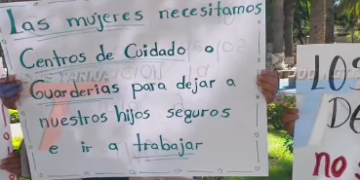 Las mujeres necesitamos
Centros de Cuidado o
Guarderias para dejar a
nuestros hijos seguros
e ir a trabajar
LOS
DE
no